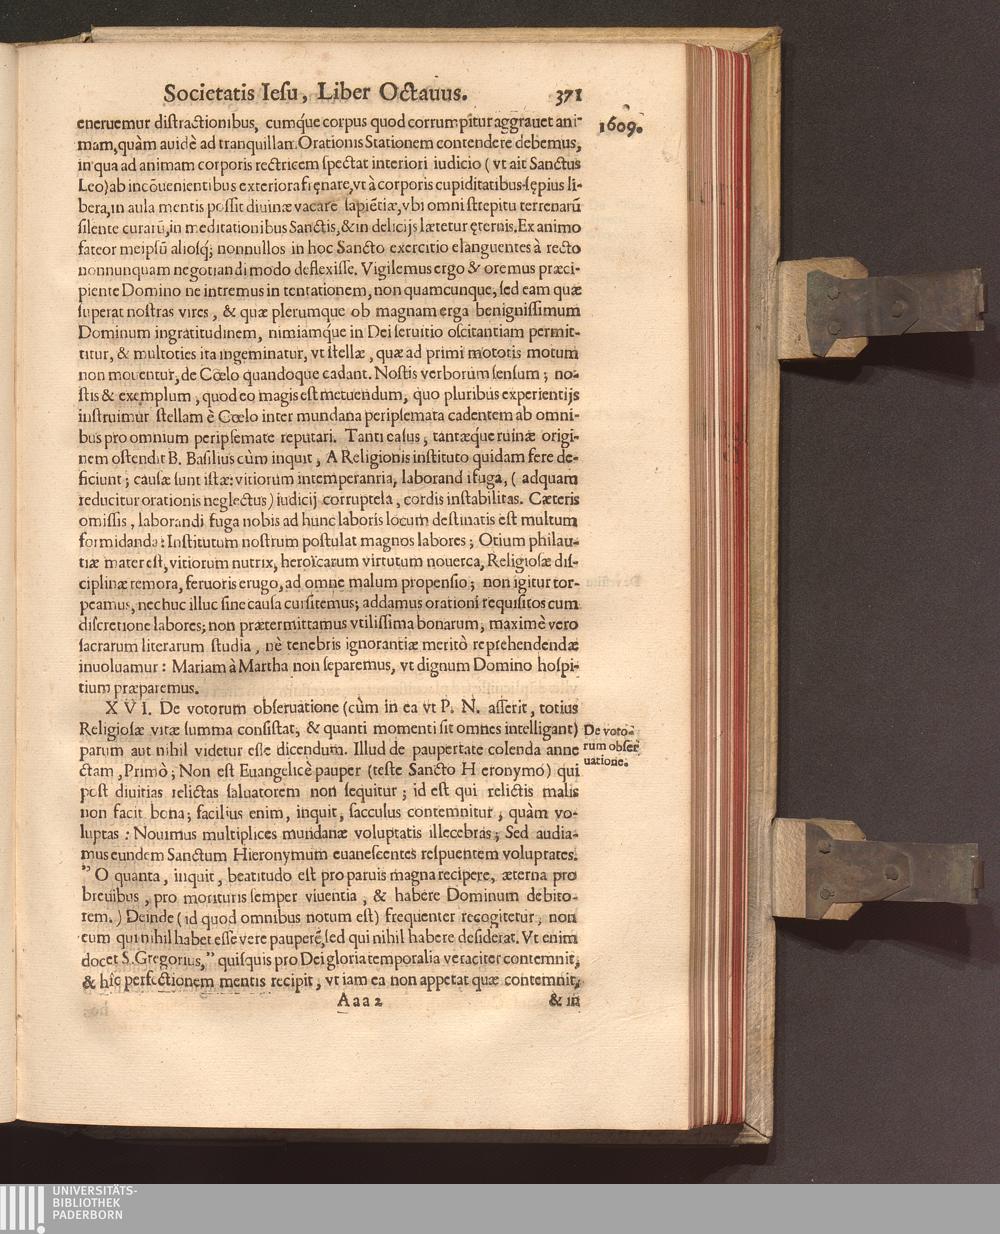 Societatis Iesu, Liber Octauus. 371
1609.
eneruemur distractionibus, cumq́ue corpus quod corrumpitur aggrauet ani-
mam, quàm auidè ad tranquillam Orationis Stationem contendere debemus,
in qua ad animam corporis rectricem spectat interiori iudicio ( vt ait Sanctus
Leo) ab incōuenientibus exteriora fręnare, vt à corporis cupiditatibus sępius li-
bera, in aula mentis possit diuinæ vacare sapiētiæ, vbi omni strepitu terrenarū
silente curarū, in meditationibus Sanctis, & in delicijs lætetur ęternis. Ex animo
fateor meipsū aliosq; nonnullos in hoc Sancto exercitio elanguentes à recto
nonnunquam negotiandi modo deflexisse. Vigilemus ergo & oremus præci-
piente Domino ne intremus in tentationem, non quamcunque, sed eam quæ
superat nostras vires, & quæ plerumque ob magnam erga benignissimum
Dominum ingratitudinem, nimiamq́ue in Dei seruitio oscitantiam permit-
titur, & multoties ita ingeminatur, vt stellæ, quæ ad primi motoris motum
non mouentur, de Cœlo quandoque cadant. Nostis verborum sensum ; no-
stis & exemplum, quod eo magis est metuendum, quo pluribus experientijs
instruimur stellam è Cœlo inter mundana peripsemata cadentem ab omni-
bus pro omnium peripsemate reputari. Tanti casus, tantæq́ue ruinæ origi-
nem ostendit B. Basilius cùm inquit, A Religionis instituto quidam fere de-
ficiunt ; causæ sunt istæ: vitiorum intemperanria, laborandi fuga, ( adquam
reducitur orationis neglectus ) iudicij corruptela, cordis instabilitas. Cæteris
omissis, laborandi fuga nobis ad hunc laboris locum destinatis est multum
formidanda : Institutum nostrum postulat magnos labores ; Otium philau-
tiæ mater est, vitiorum nutrix, heroïcarum virtutum nouerca, Religiosæ dis-
ciplinæ remora, feruoris erugo, ad omne malum propensio ; non igitur tor-
peamus, nec huc illuc sine causa cursitemus; addamus orationi requisitos cum
discretione labores; non prætermittamus vtilissima bonarum, maximè vero
sacrarum literarum studia, nè tenebris ignorantiæ meritò reprehendendæ
inuoluamur : Mariam à Martha non separemus, vt dignum Domino hospi-
tium præparemus.
XVI. De votorum obseruatione (cùm in ea vt P. N. asserit, totius
Religiosæ vitæ summa consistat, & quanti momenti sit omnes intelligant)
parum aut nihil videtur esse dicendum. Illud de paupertate colenda anne
ctam, Primò ; Non est Euangelicè pauper (teste Sancto Hieronymo) qui
post diuitias relictas saluatorem non sequitur ; id est qui relictis malis
non facit bona; facilius enim, inquit, sacculus contemnitur, quàm vo-
luptas : Nouimus multiplices mundanæ voluptatis illecebras; Sed audia-
mus eundem Sanctum Hieronymum euanescentes respuentem voluptates.
” O quanta, inquit, beatitudo est pro paruis magna recipere, æterna pro
breuibus, pro morituris semper viuentia, & habere Dominum debito-
rem.) Deinde ( id quod omnibus notum est) frequenter recogitetur, non
eum qui nihil habet esse vere pauperē, sed qui nihil habere desiderat. Vt enim
docet S. Gregorius, ” quisquis pro Dei gloria temporalia veraciter contemnit,
& hîc perfectionem mentis recipit, vt iam ea non appetat quæ contemnit,
De voto-
rum obser
uatione.
Aaa 2 & in
UNIVERSITÄTS-
BIBLIOTHEK
PADERBORN